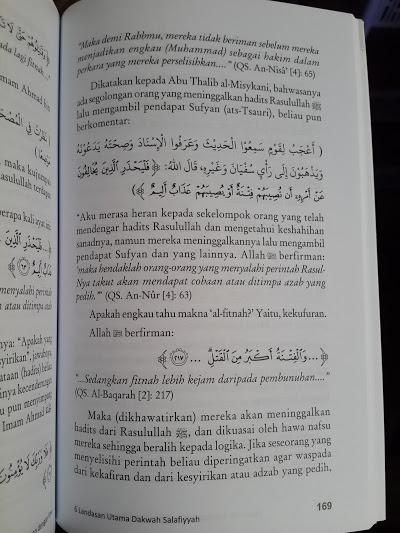 "Maka demi Rabbmu, mereka tidak beriman sebelum mereka
menjadikan engkau (Muhammad) sebagai hakim dalam
perkara yang mereka perselisihkan...." (QS. An-Nisâ' [4]: 65)
Dikatakan kepada Abu Thalib al-Misykani, bahwasanya
ada segolongan orang yang meninggalkan hadits Rasulullah ﷺ
lalu mengambil pendapat Sufyan (ats-Tsauri), beliau pun
berkomentar:
( أَعْجَبُ لِقَوْمٍ سَمِعُوا الْحَدِيْثَ وَعَرَفُوا الْإِسْنَادَ وَصِحَّتَهُ يَدَعُوْنَهُ
وَيَذْهَبُوْنَ إِلَى رَأْيِ سُفْيَانَ وَغَيْرِهِ، قَالَ اللهُ: ﴿ فَلْيَحْذَرِ الَّذِينَ يُخَالِفُونَ
عَنْ أَمْرِهِ أَنْ تُصِيبَهُمْ فِتْنَةٌ أَوْ يُصِيبَهُمْ عَذَابٌ أَلِيمٌ ﴾)
"Aku merasa heran kepada sekelompok orang yang telah
mendengar hadits Rasulullah dan mengetahui keshahihan
sanadnya, namun mereka meninggalkannya lalu mengambil
pendapat Sufyan dan yang lainnya. Allah ﷻ berfirman:
'maka hendaklah orang-orang yang menyalahi perintah Rasul-
Nya takut akan mendapat cobaan atau ditimpa azab yang
pedih.'" (QS. An-Nûr [4]: 63)
Apakah engkau tahu makna 'al-fitnah?' Yaitu, kekufuran.
Allah ﷻ berfirman:
﴿ ... وَالْفِتْنَةُ أَكْبَرُ مِنَ الْقَتْلِ ... ٢١٧ ﴾
"...Sedangkan fitnah lebih kejam daripada pembunuhan...."
(QS. Al-Baqarah [2]: 217)
Maka (dikhawatirkan) mereka akan meninggalkan
hadits dari Rasulullah ﷺ, dan dikuasai oleh hawa nafsu
mereka sehingga beralih kepada logika. Jika seseorang yang
menyelisihi perintah beliau diperingatkan agar waspada
dari kekafiran dan dari kesyirikan atau adzab yang pedih,
169
6 Landasan Utama Dakwah Salafiyyah